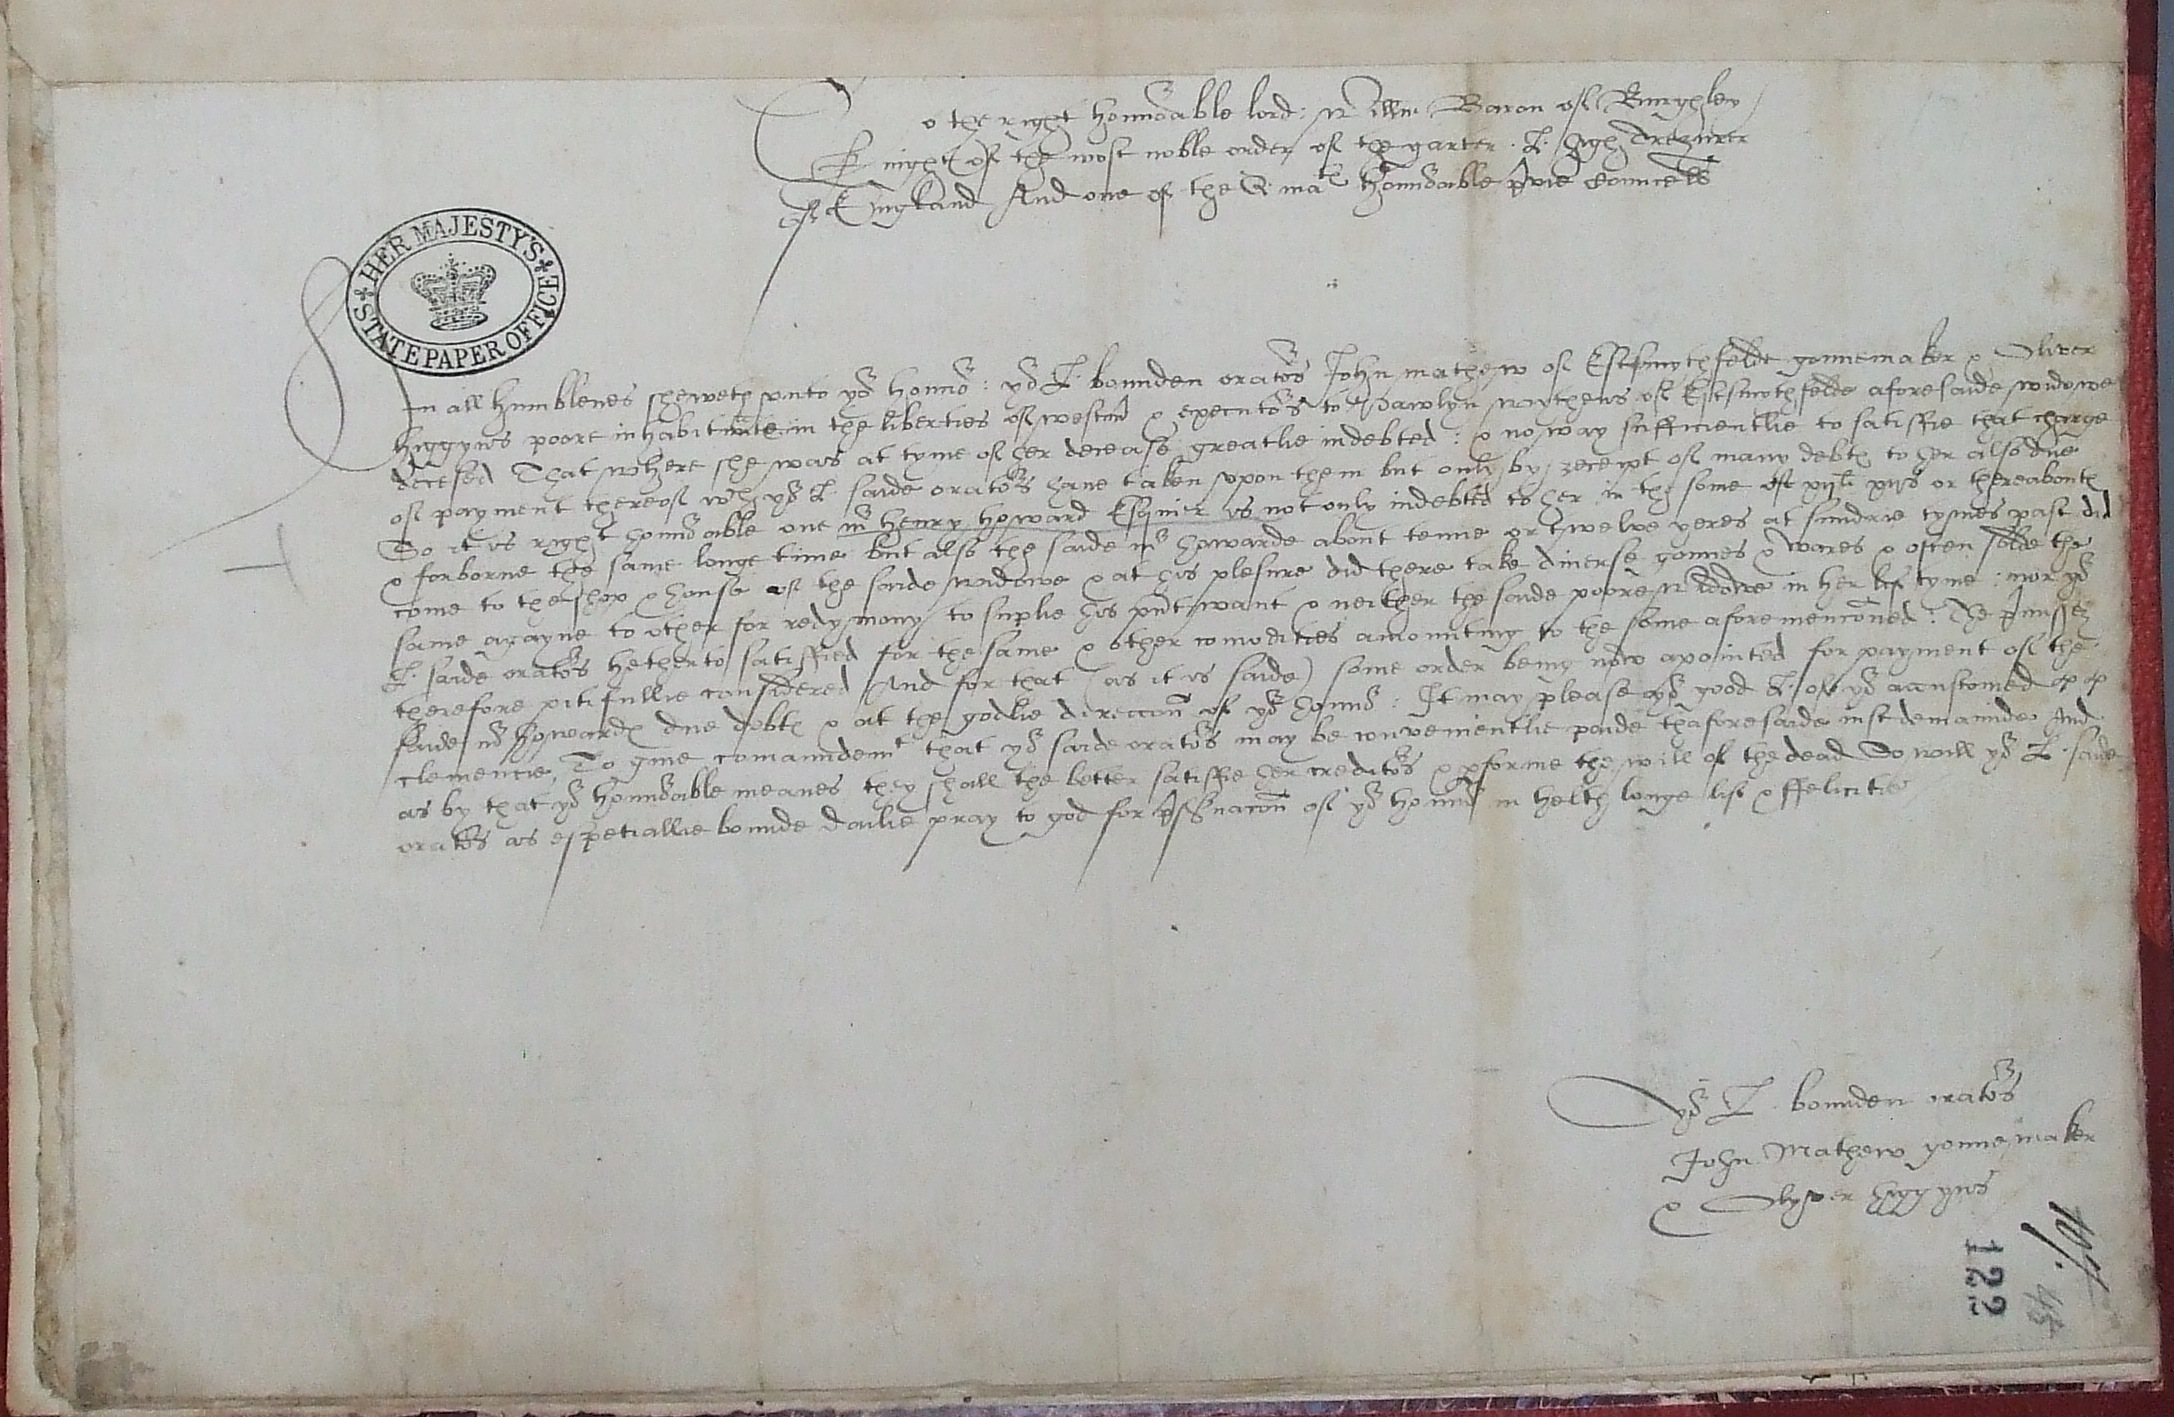 To the right honnorable lord: Willm Baron of Burghley
Knight of the most noble order of the garter. L. high Trezurer
of England And one of the Q. matis honnorable privie Counsells
HER MAJESTY'S
STATE PAPER OFFICE
In all humblenes sheweth unto yor honnor: yor L. bounden orators John mathew of Estsmythfelde gonnemaker & Oliver
higgyns poore inhabitante in the liberties of westmr & executors to Pawlyn mathews of Estsmythfelde aforesaide widowe
decesed That where she was at tyme of her decease greatlie indebted: & no way sufficientlie to satisfie that charge
of payment thereof wch yor L. saide orators have taken upon them but only by receipt of many debts to her also due
So it is right honnorable one mr henry howard Esquier is not only indebted to her in the some of xijli xijs or thereabouts
& forborne the same longe time but also the saide mr howarde about tenne or twelve yeres at sundrie tymes past did
come to the shop & house of the saide widowe & at his plesure did there take diverse gonnes & wares & often solde the
same agayne to other for redy mony to suplie his pnt want & neither the saide poore widowe in her lif tyme: nor yor
L. saide orators hetherto satisfied for the same & other comodities amounting to the some aforementioned: The pmisses
therefore pitifullie considered And for that (as it is saide) some order being now apointed for payment of the
saide mr howards due debts & at the godlie direccon of yor honnor: It may please yor good L. of yor accustomed
clemencie, To give comaundemt that yor saide orators may be convenientlie paide thaforesaide just demaunde And
as by that yor honnorable meanes they shall the better satisfie her creditors & pforme the will of the dead So will yor L. saide
orators as espetiallie bounde dailie pray to god for pservacon of yor honnor in helth longe lif & ffelicitie
Yor L. bounden orators
John Mathew gonnemaker
& Olyver higgyns
122
45